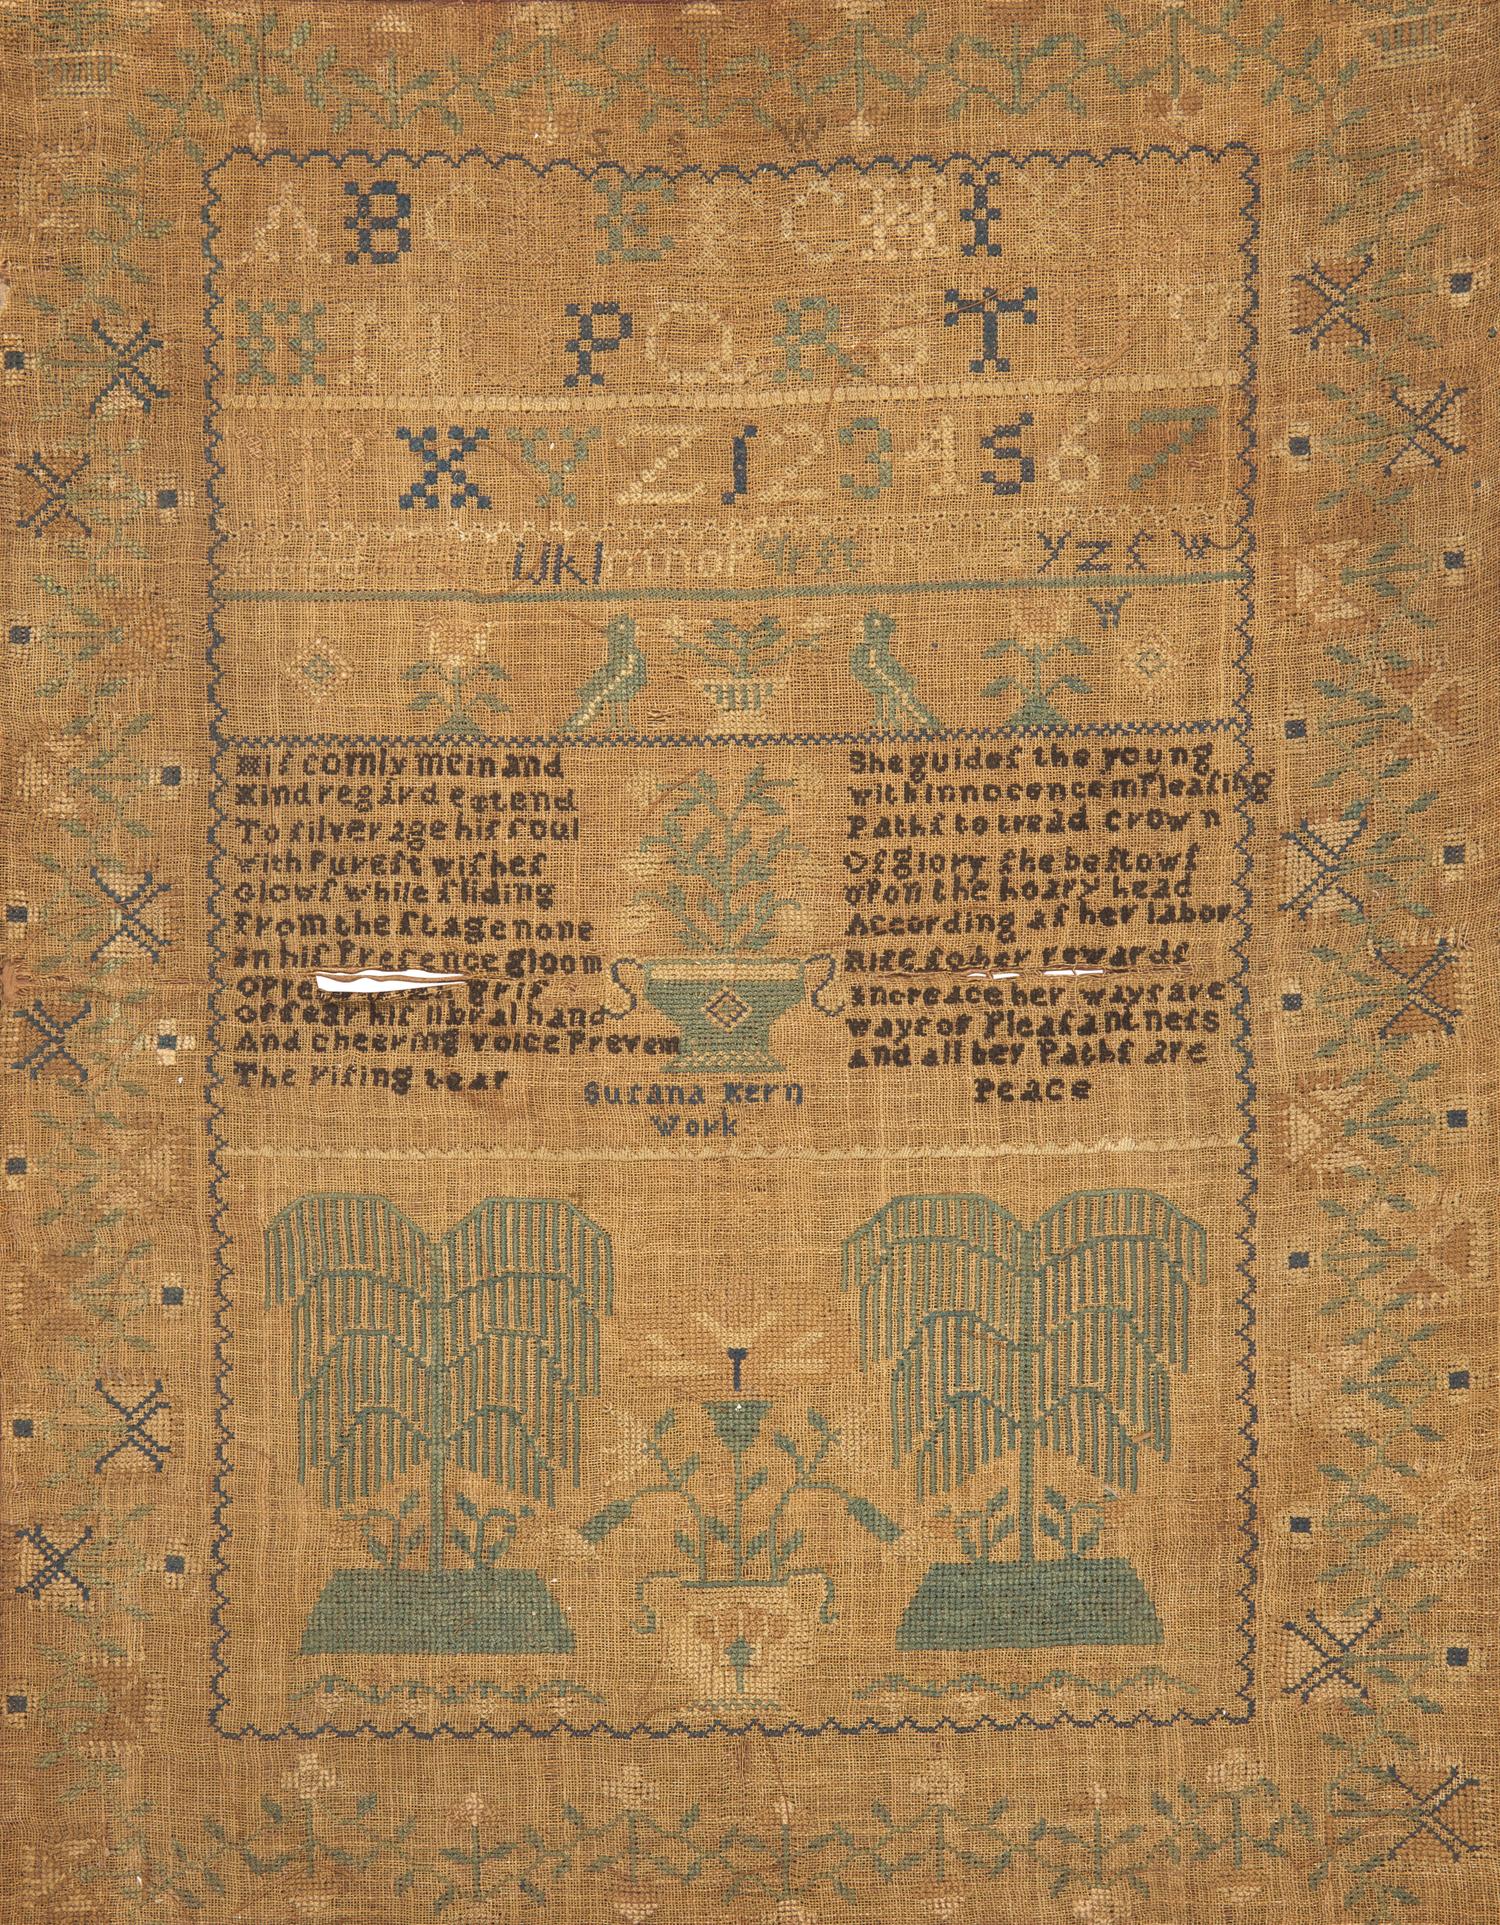 S S W
A B C D E F G H I K L
M N O P Q R S T U V
W X Y Z 1 2 3 4 5 6 7
ijklmnop qrſt y z ſ w
W
Hiſ comly mein and
Kind regard extend
To ſilver age hiſ ſoul
with Pureſt wiſheſ
Glowſ while ſliding
From the ſtage none
in hiſ Preſence gloom
griſ
or fear hiſ libral hand
And cheering voice Preven
The riſing tear
She guideſ the young
with innocence in Pleaſing
Pathſ to tread crown
Of glory ſhe beſtowſ
upon the hoary head
According aſ her labor
Riſe ſo her rewardſ
increace her wayſ are
wayſ of Pleaſantneſs
and all her Pathſ are
Peace
Suſana Kern
Work